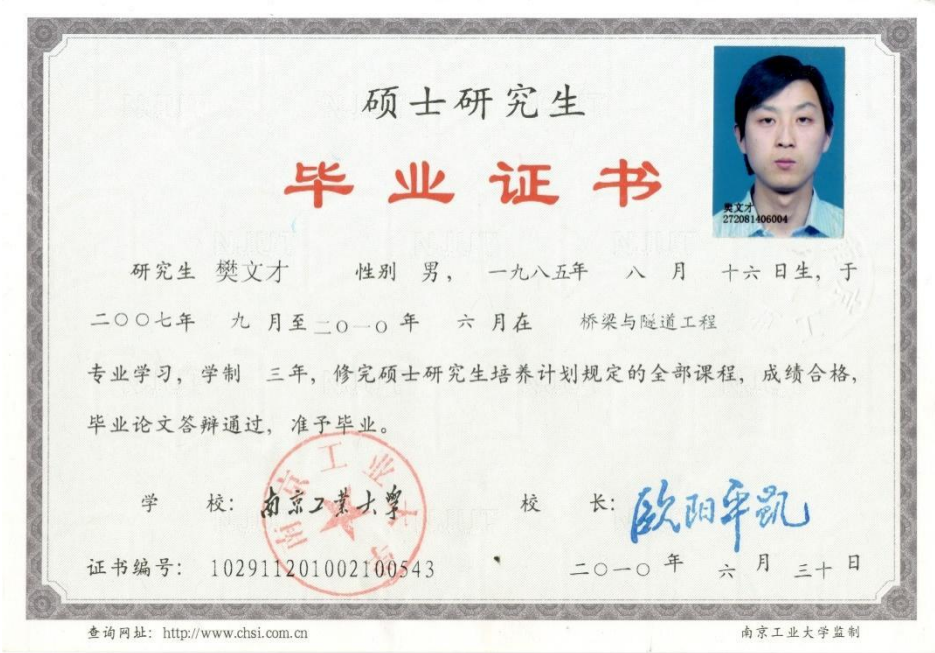 硕士研究生
毕业证书
樊文才
272081406004
研究生 樊文才 性别 男， 一九八五年 八 月 十六日生，于
二〇〇七年 九 月至二〇一〇年 六 月在 桥梁与隧道工程
专业学习，学制 三年，修完硕士研究生培养计划规定的全部课程，成绩合格，
毕业论文答辩通过，准予毕业。
南京工业大学
学 校：南京工业大学 校 长：欧阳平凯
证书编号： 102911201002100543 二〇一〇年 六 月 三十日
查询网址：http://www.chsi.com.cn 南京工业大学监制